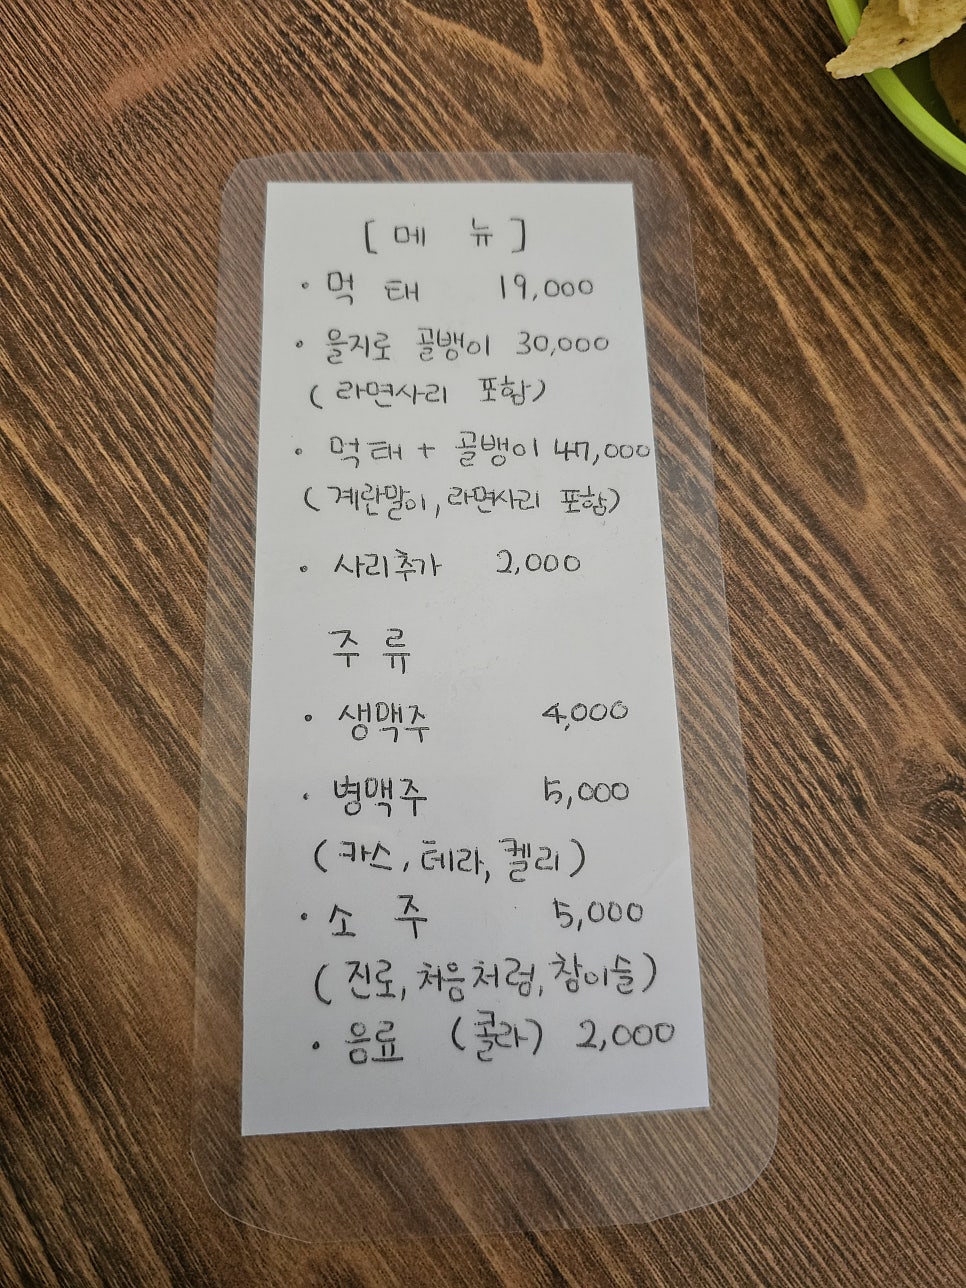 [메 뉴]
· 먹 태 19,000
· 을지로 골뱅이 30,000
(라면사리 포함)
· 먹태 + 골뱅이 47,000
(계란말이, 라면사리 포함)
· 사리추가 2,000
주 류
· 생맥주 4,000
· 병맥주 5,000
(카스, 테라, 켈리)
· 소 주 5,000
(진로, 처음처럼, 참이슬)
· 음료 (콜라) 2,000